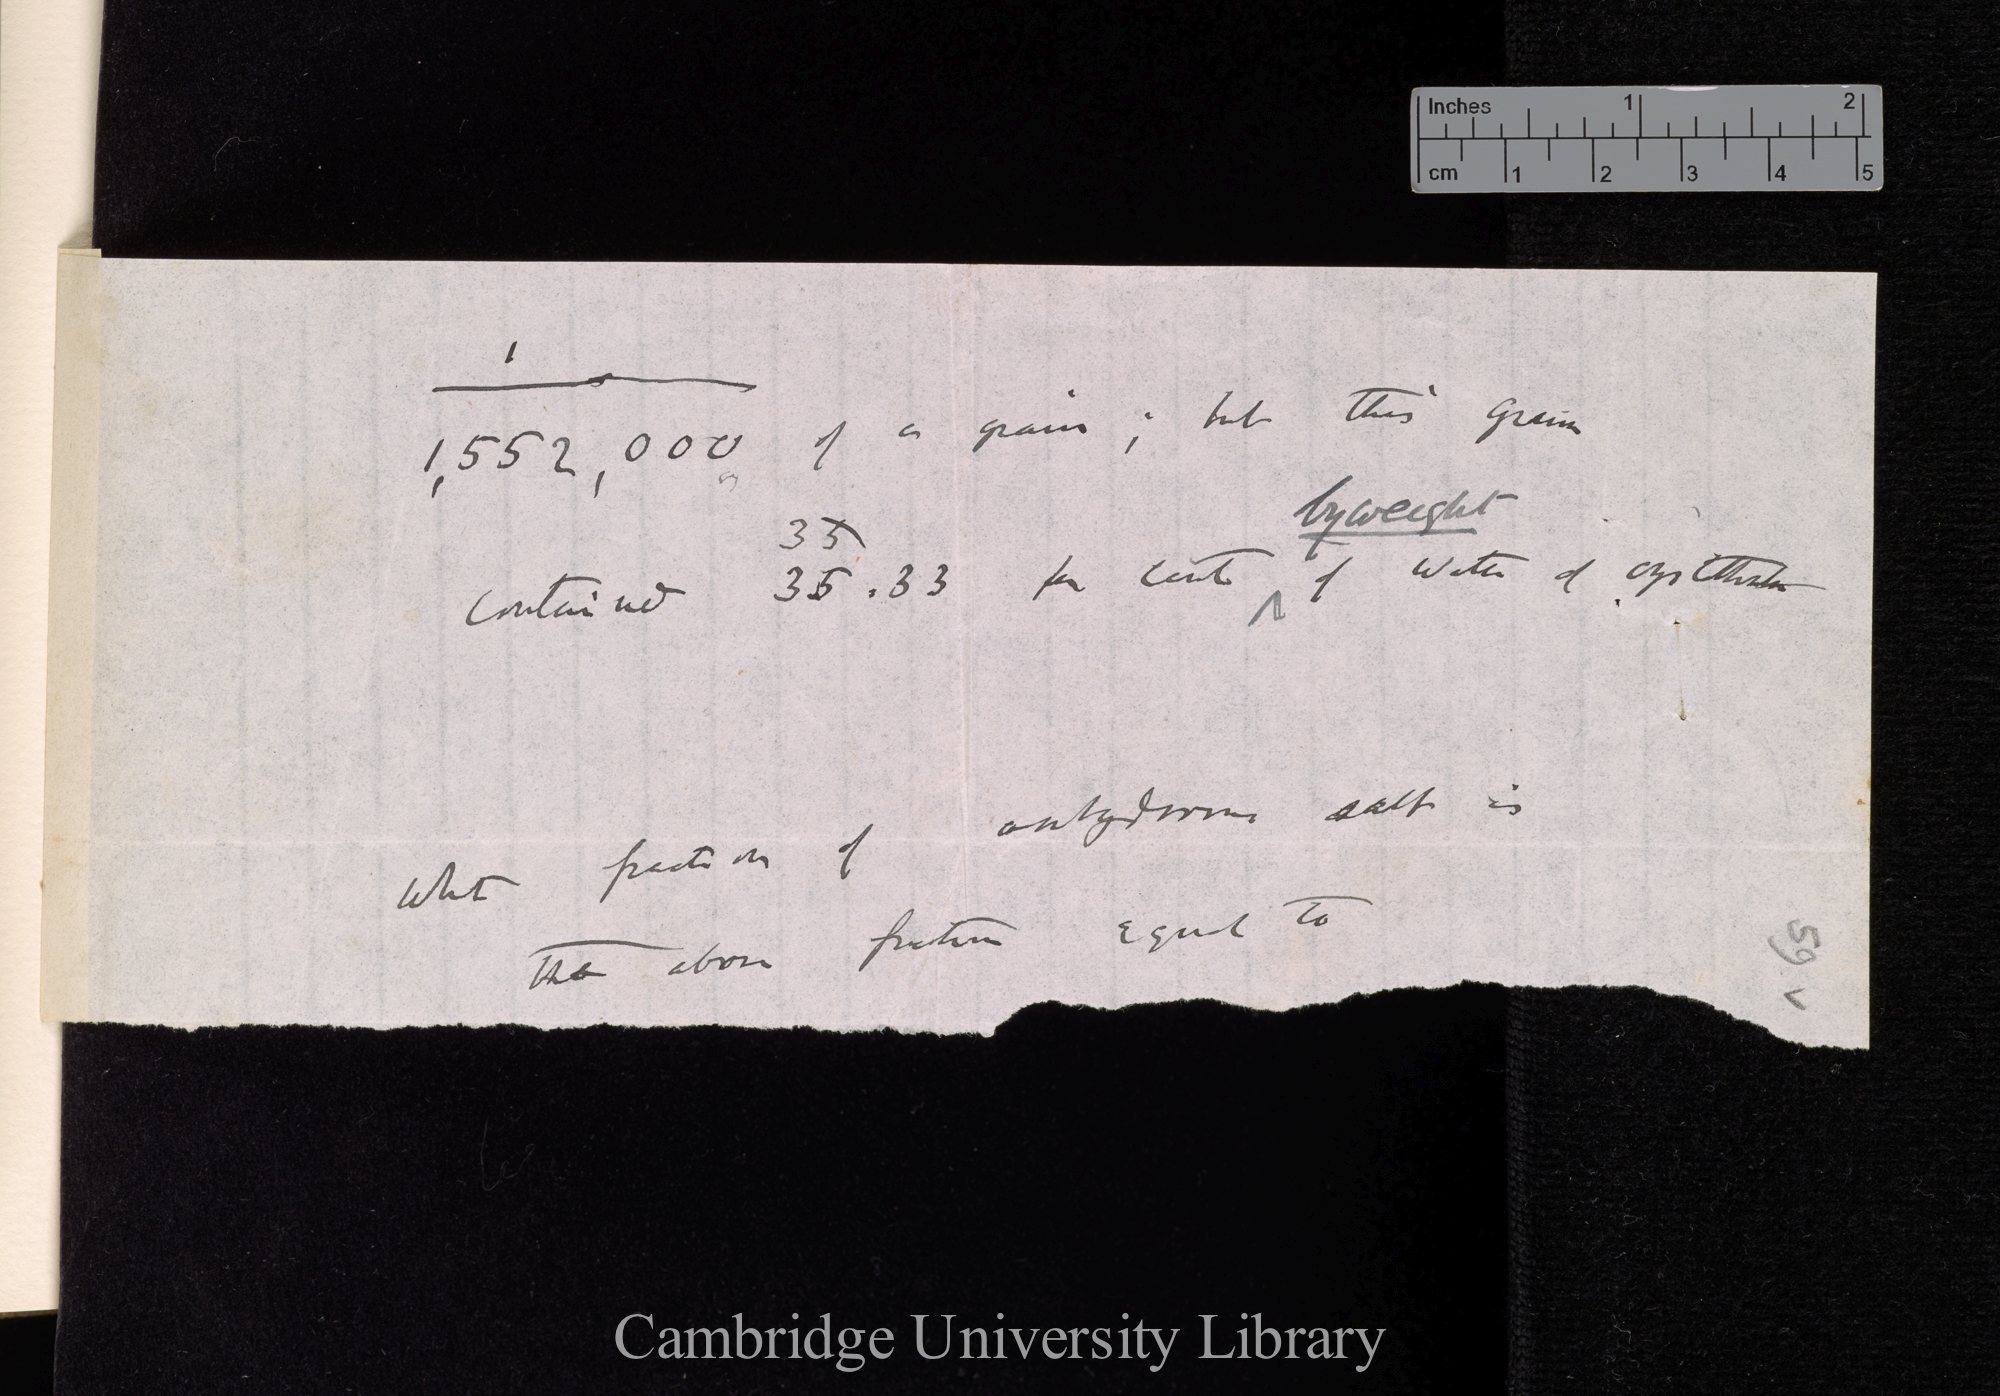 Inches 1 2
cm 1 2 3 4 5
1
1,552,000 of a grain; but this grain
by weight
35
contained 35.33 per cent of water of crystallisation
What fraction of anhydrous salt is
the above fraction equal to
59v
Cambridge University Library